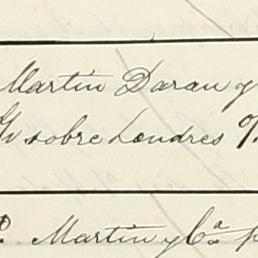 Martin Daran y
sobre Londres
Martin y Ca. p